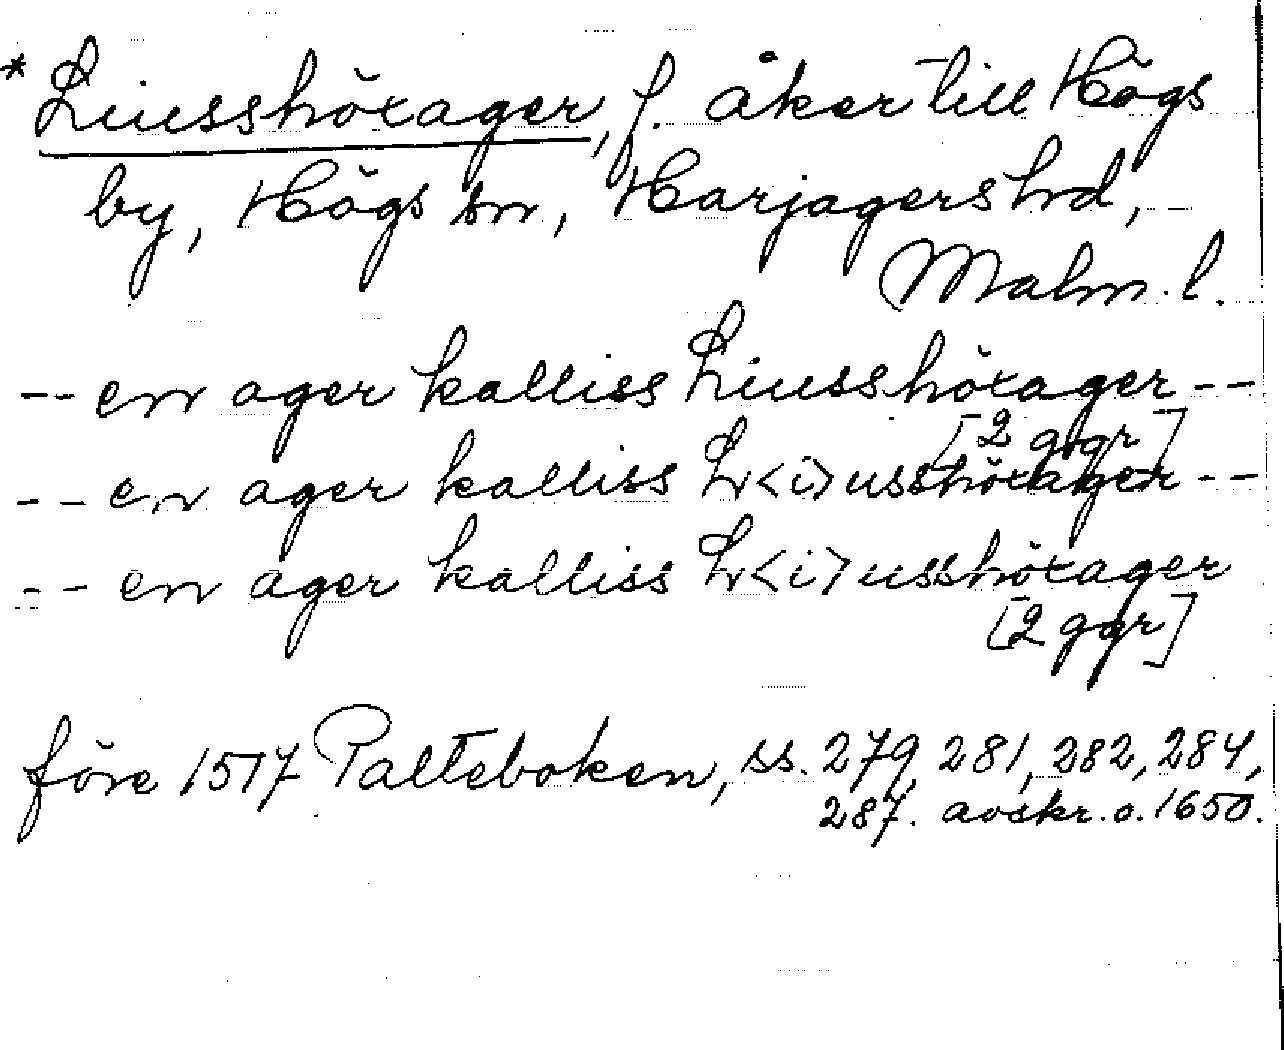 * Liusshöxager, f. åker till Högs
by, Högs sn, Harjagers hd,
Malm. l.
-- en ager kalliss Liusshöxager --
[2 ggr]
-- en ager kalliss L<i>usshöxager --
-- en ager kalliss L<i>usshöxager
[2 ggr]
före 1517 Palteboken, ss. 279, 281, 282, 284,
287. avskr. o. 1650.